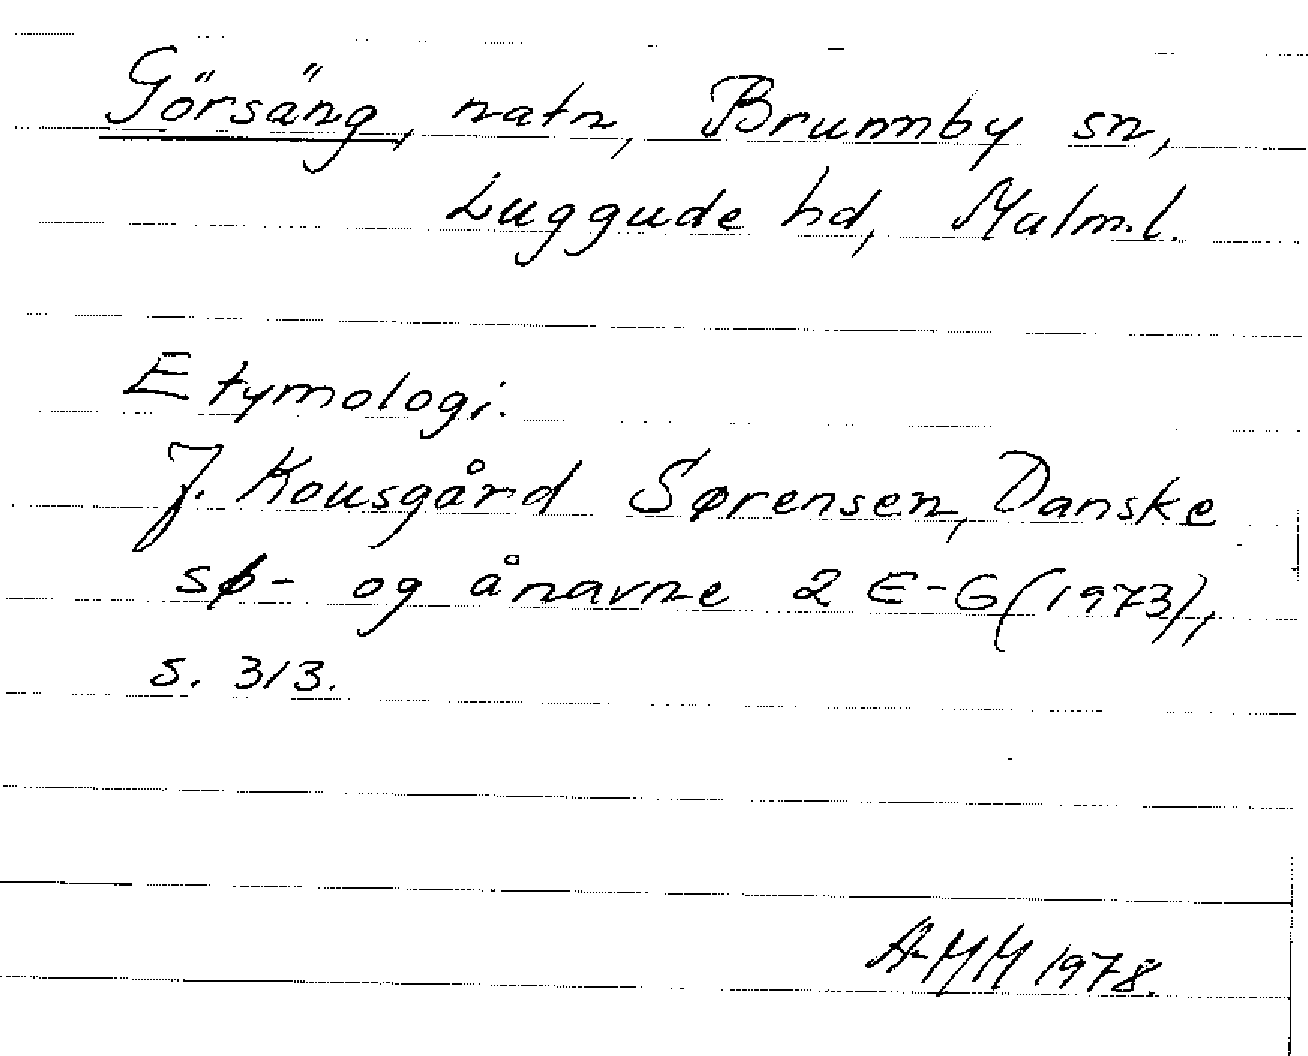 Görsäng, natn, Brunnby sn,
Luggude hd, Malm.l.
Etymologi.
J. Kousgård Sørensen, Danske
sø- og ånavne 2 E-G (1973),
s. 313.
AMM 1978.